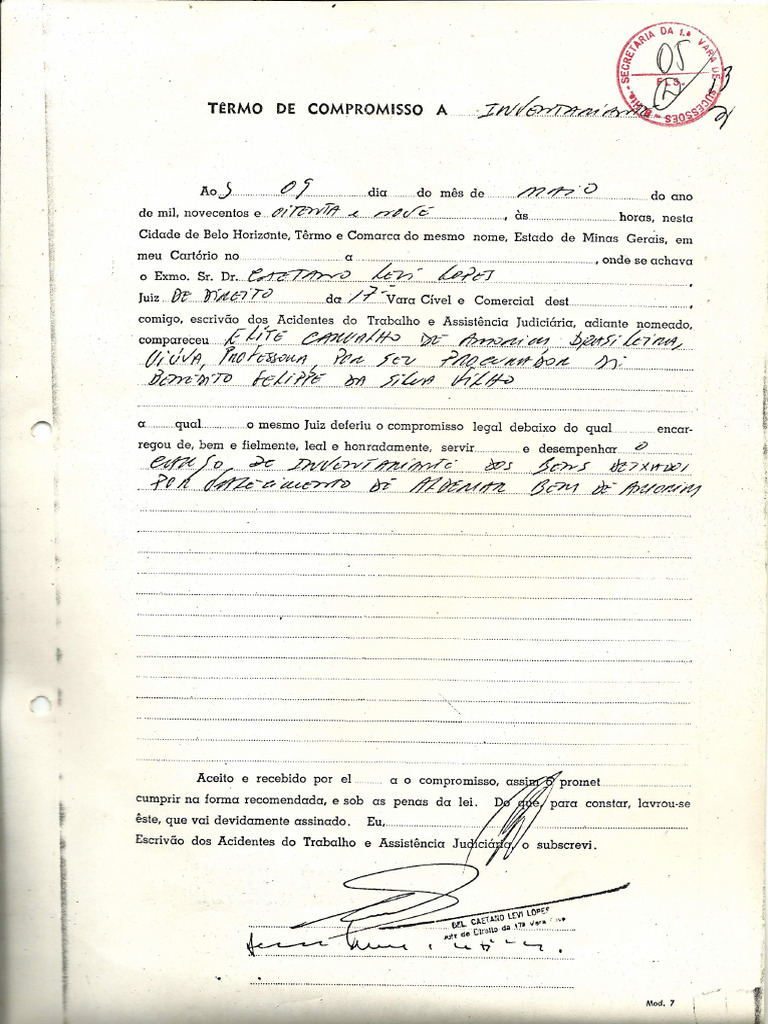 SECRETARIA DA 1.ª VARA DE SUCESSÕES - B.Hte.
05
FLS.
TÊRMO DE COMPROMISSO A INVENTARIANTE
Aos 09 dia do mês de MAIO do ano
de mil, novecentos e OITENTA e NOVE, às horas, nesta
Cidade de Belo Horizonte, Têrmo e Comarca do mesmo nome, Estado de Minas Gerais, em
meu Cartório no a , onde se achava
o Exmo. Sr. Dr. CAETANO LEVI LOPES
Juiz DE DIREITO da 17ª Vara Cível e Comercial dest ,
comigo, escrivão dos Acidentes do Trabalho e Assistência Judiciária, adiante nomeado,
compareceu ELITE CARVALHO DE AMORIM BRASILEIRA,
VIÚVA, PROFESSORA, POR SEU PROCURADOR Dr
BENEDITO FELIPPE DA SILVA FILHO
a qual o mesmo Juiz deferiu o compromisso legal debaixo do qual encar-
regou de, bem e fielmente, leal e honradamente, servir e desempenhar O
CARGO DE INVENTARIANTE DOS BENS DEIXADOS
POR FALECIMENTO DE ALDEMAR BEM DE AMORIM
Aceito e recebido por el a o compromisso, assim o promet
cumprir na forma recomendada, e sob as penas da lei. Do que, para constar, lavrou-se
êste, que vai devidamente assinado. Eu,
Escrivão dos Acidentes do Trabalho e Assistência Judiciária, o subscrevi.
BEL. CAETANO LEVI LOPES
Juiz de Direito da 17ª Vara Cível
Mod. 7